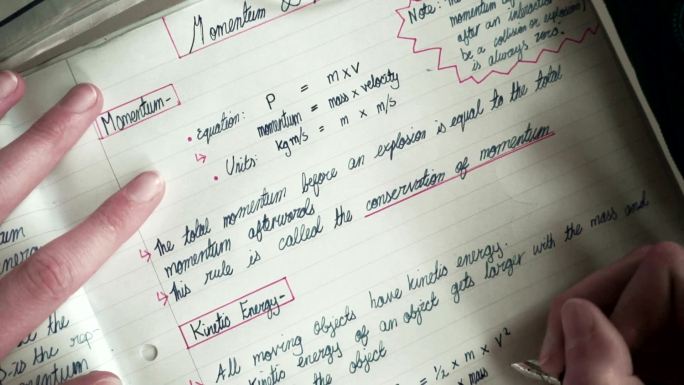 Momentum &
Note:
momentum
after an interaction
be a collision or explosion)
is always zero.
Momentum-
• Equation: P = m x v
momentum = mass x velocity
• Units: kg m/s = m x m/s
The total momentum before an explosion is equal to the total
momentum afterwords
this rule is called the conservation of momentum
Kinetic Energy-
All moving objects have kinetic energy.
Kinetic energy of an object gets larger with the mass and
the object
= 1/2 x m x v²
x mass
the
is the rep-
mentum